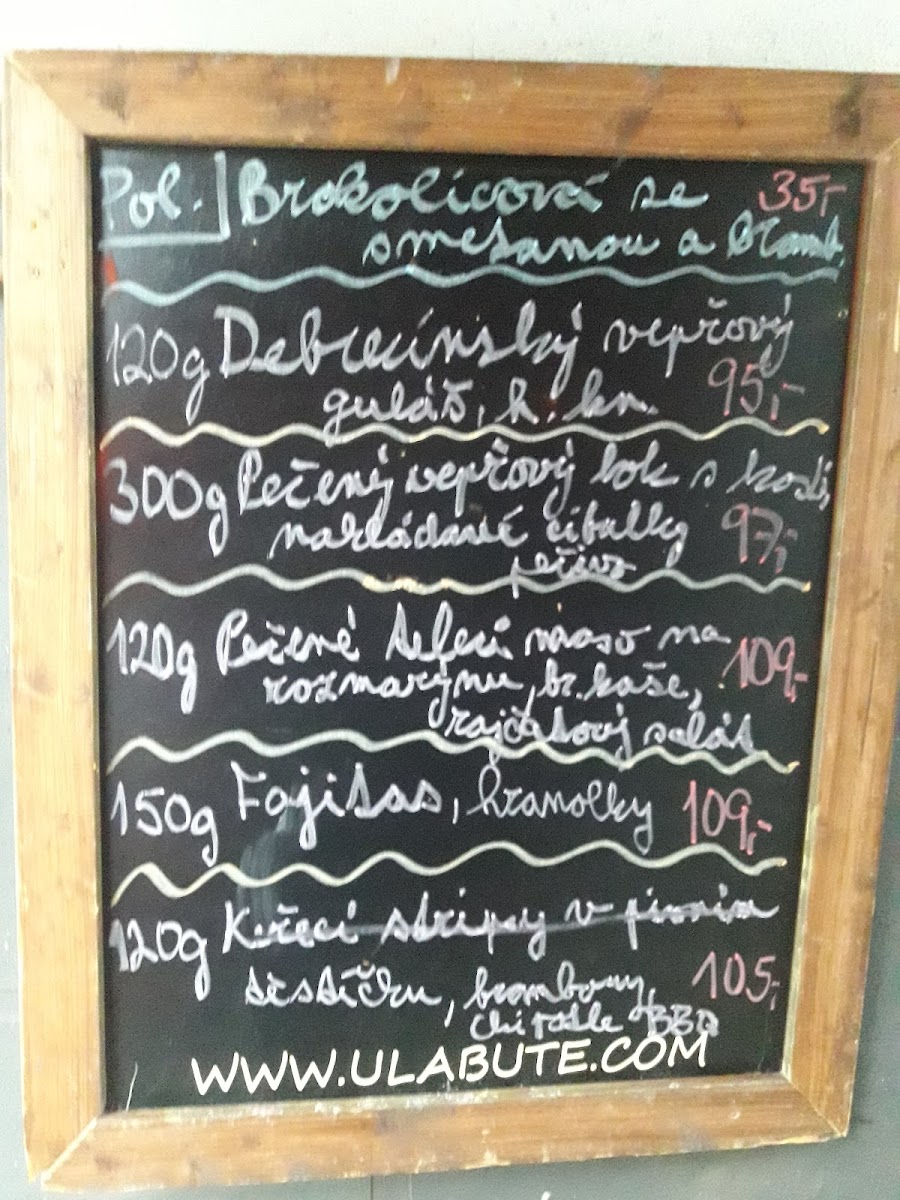 Pol. Brokolicová se 35,-
smetanou a bramb.
120g Debrecínský vepřový
guláš, h. kn. 95,-
300g Pečený vepřový bok s kostí,
nakládané cibulky 97,-
pečivo
120g Pečené telecí maso na
rozmarýnu, br. kaše, 109,-
rajčatový salát
150g Fajitas, hranolky 109,-
120g Kuřecí stripsy v pivním
těstíčku, brambory, 105,-
BBQ
WWW.ULABUTE.COM